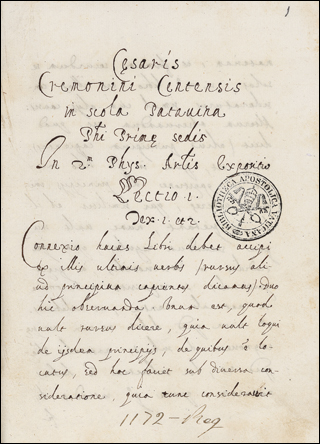 1
Cęsaris
Cremonini Centensis
in scola Patavina
Phi Primę sedis
In 2m Phys. Artis Expositio
Lectio 1.
Tex. 1. et 2.
BIBLIOTHECA APOSTOLICA VATICANA
Connexio huius Libri debet accipi
ex illis ultimis verbis / rursus ali
ud principium capientes dicamus / duo
hic observanda sunt est, quod
vult rursus dicere, quia vult loqui
de ijsdem principijs, de quibus è lo-
cutus, sed hoc facit sub diversa con-
sideratione, quia tunc considerabit
1172-Reg